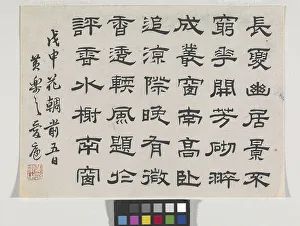 長夏幽居景不
窮華開芳砌翠
成叢窗南高臥
追涼際晚有微
香透輭風題於
評香水榭南窗
戊申花朝前五日
黄樂之